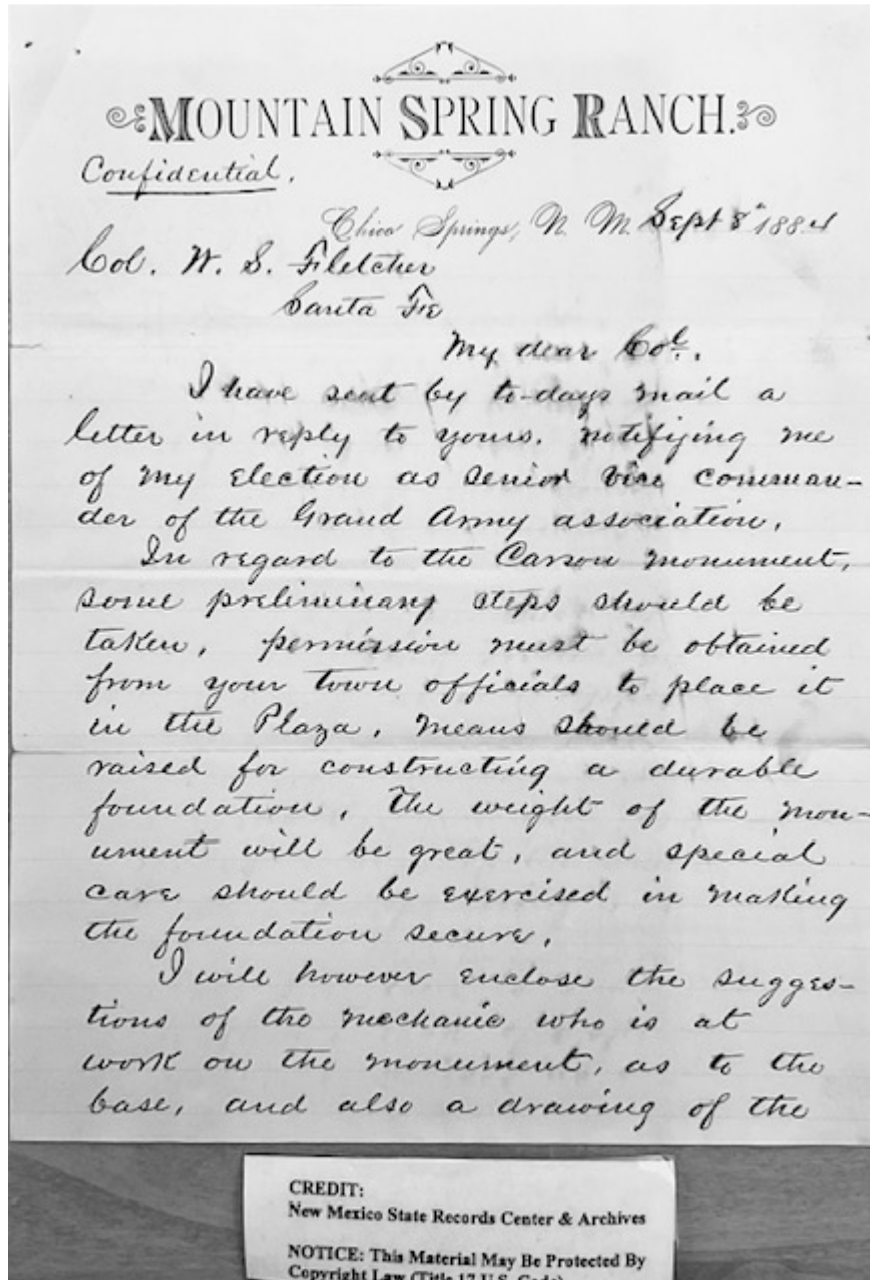 MOUNTAIN SPRING RANCH.
Confidential.
Chico Springs, N. M. Sept 8th 1884
Col. W. S. Fletcher
Santa Fe
My dear Col.
I have sent by to-days mail a
letter in reply to yours, notifying me
of my election as senior vice comman-
der of the Grand Army association.
In regard to the Carson monument,
some preliminary steps should be
taken, permission must be obtained
from your town officials to place it
in the Plaza, means should be
raised for constructing a durable
foundation, the weight of the mon-
ument will be great, and special
care should be exercised in making
the foundation secure.
I will however enclose the sugges-
tions of the mechanic who is at
work on the monument, as to the
base, and also a drawing of the
CREDIT:
New Mexico State Records Center & Archives
NOTICE: This Material May Be Protected By
Copyright Law (Title 17 U.S. Code)